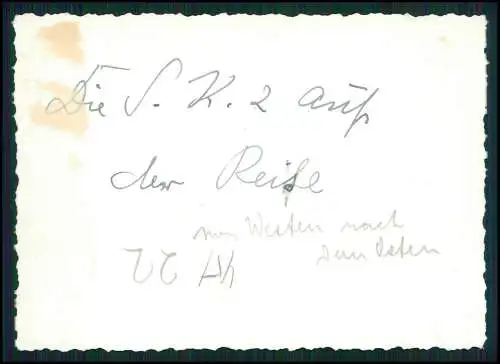 Die S. K. 2 auf
der Reise
von Westen nach
dem Osten